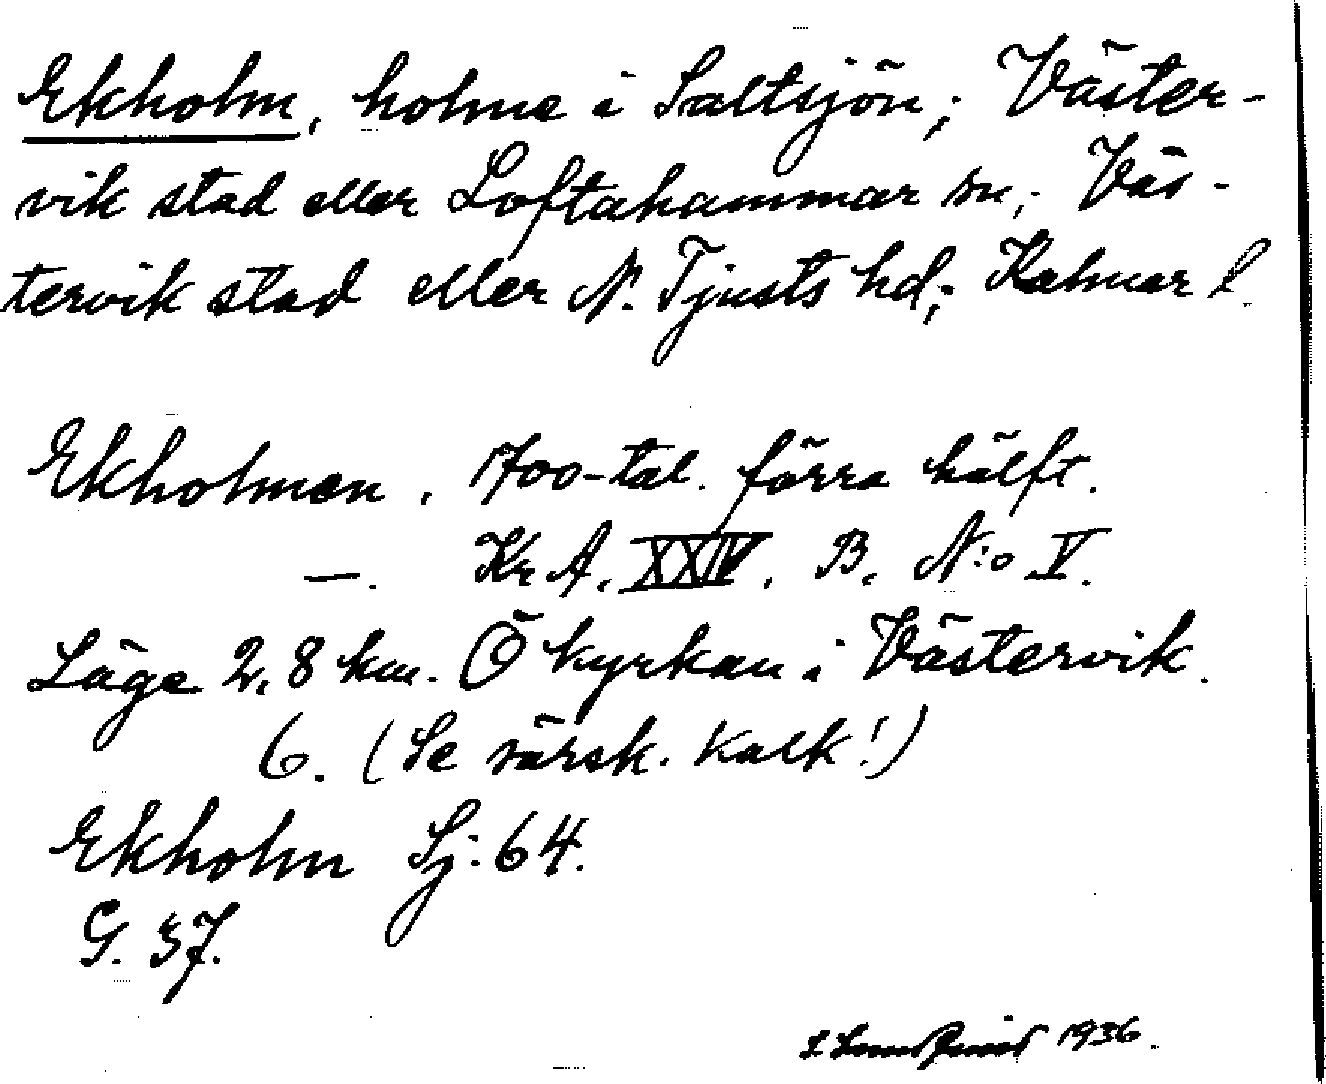 Ekholm, holme i Saltsjön; Väster-
vik stad eller Loftahammar sn; Väs-
tervik stad eller N. Tjusts hd; Kalmar l.
Ekholmen. 1700-tal. förra hälft.
—. Kr A. XXIV. B. N:o V.
Läge 2,8 km. Ö kyrkan i Västervik.
6. (Se särsk. kalk!)
Ekholm Sj: 64.
G. 37.
1936.